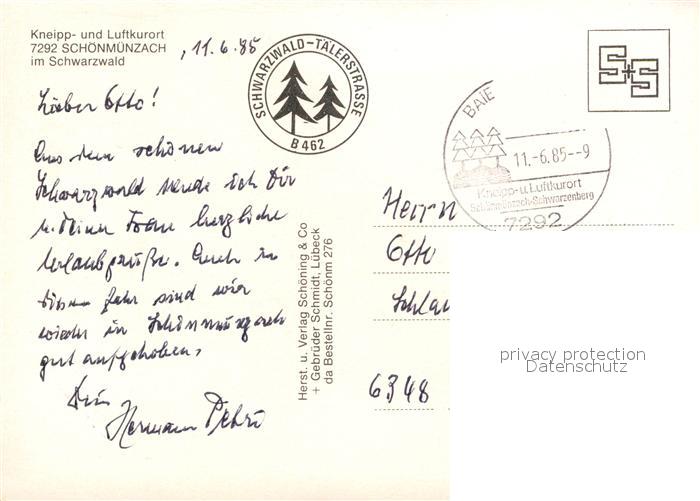 Kneipp- und Luftkurort
7292 SCHÖNMÜNZACH
im Schwarzwald
, 11.6.85
SCHWARZWALD-TÄLERSTRASSE
B 462
S+S
BAIE
11.-6.85--9
Kneipp-u.Luftkurort
Schönmünzach-Schwarzenberg
7292
Lieber Otto!
Aus dem schönen
Schwarzwald sende ich Dir
u. Deiner Frau herzliche
Urlaubsgrüße. Auch in
diesem Jahr sind wir
wieder in Schönmünzach
gut aufgehoben.
Dein
Hermann Petri
Herst. u. Verlag Schöning & Co
+ Gebrüder Schmidt, Lübeck
da Bestellnr. Schönm 276
Herrn
Otto
Schla
6348
privacy protection
Datenschutz